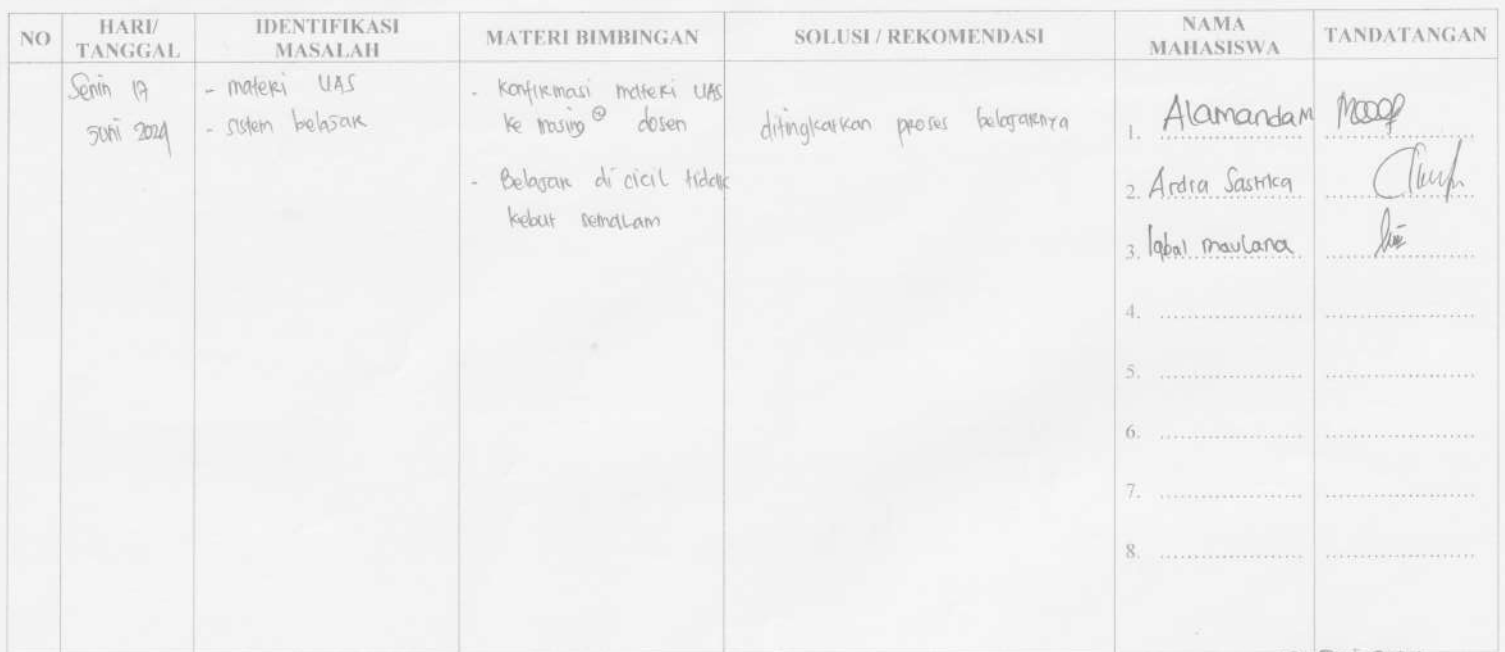 NO HARI/ TANGGAL IDENTIFIKASI MASALAH MATERI BIMBINGAN SOLUSI / REKOMENDASI NAMA MAHASISWA TANDATANGAN
Senin 17
Juni 2024
- materi UAS
- sistem belajar
- Konfirmasi materi UAS
ke masing² dosen
- Belajar di cicil tidak
kebut semalam
ditingkatkan proses belajarnya
1. Alamanda M
2. Ardra Sastrica
3. Iqbal maulana
4. ....................
5. ....................
6. ....................
7. ....................
8. ....................